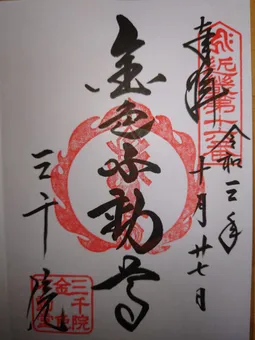 奉拝
令和三年
十月廿七日
金色不動尊
三千院
近畿第十六番
三千院
金色